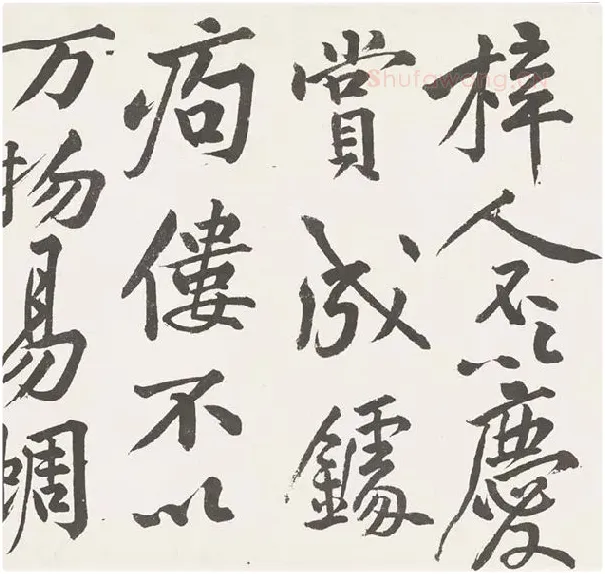 梓人不以慶
賞成鐻
痀僂不以
万物易蜩
Shufawang.CN